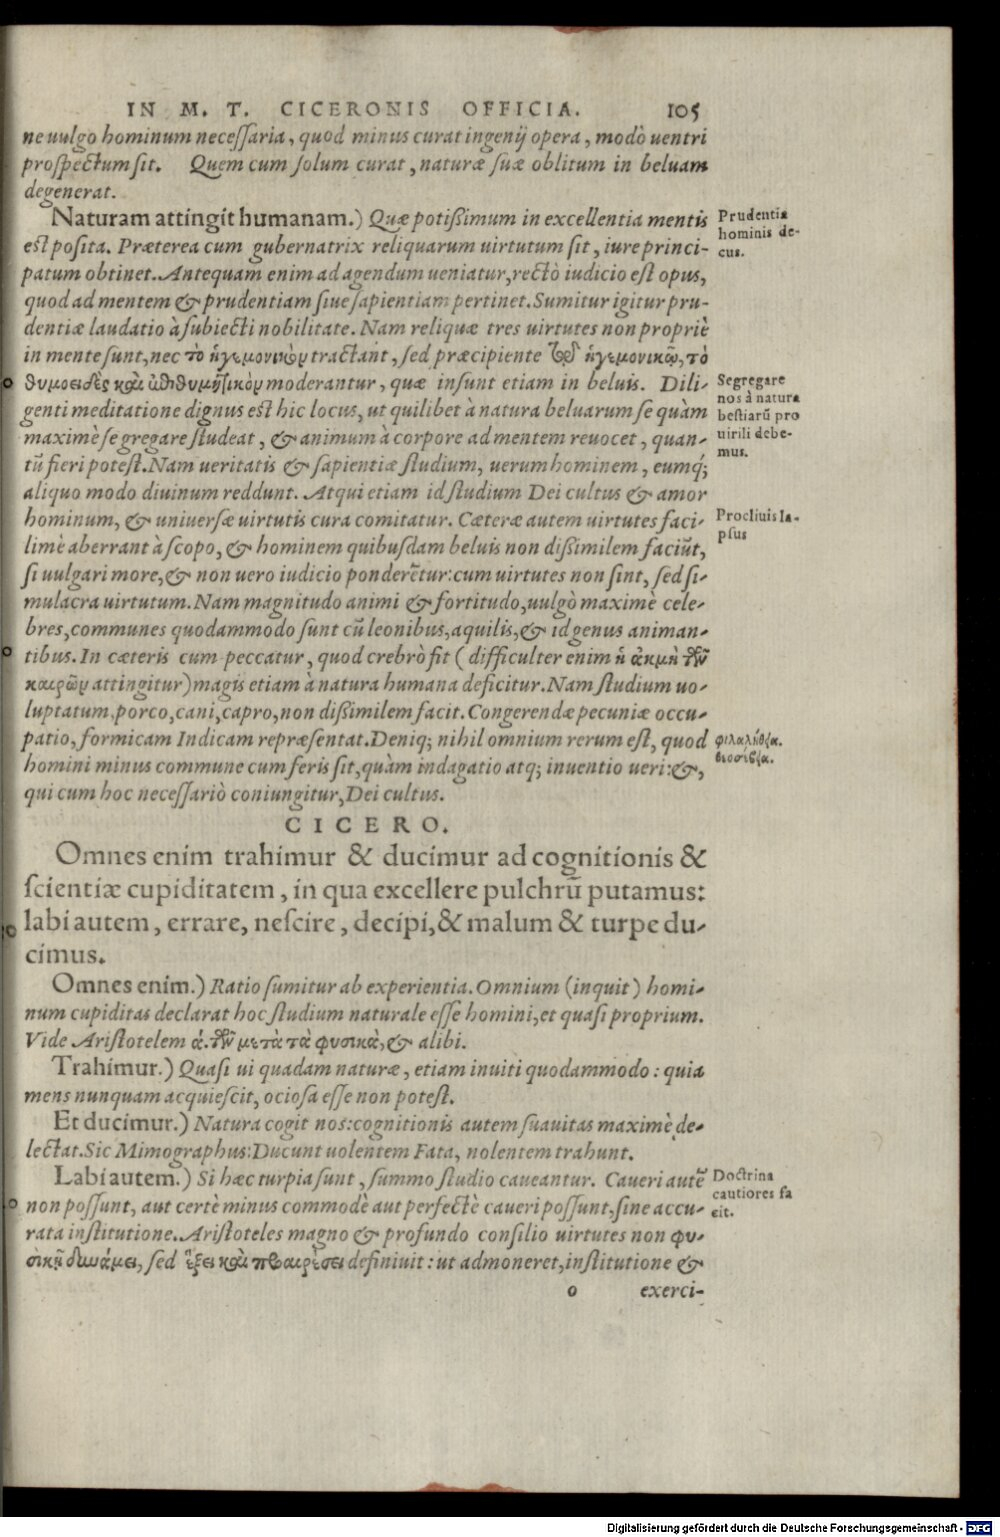 IN M. T. CICERONIS OFFICIA. 105
ne uulgo hominum necessaria, quod minus curat ingenij opera, modò uentri
prospectum sit. Quem cum solum curat, naturæ suæ oblitum in beluam
degenerat.
Naturam attingit humanam.) Quæ potißimum in excellentia mentis
est posita. Præterea cum gubernatrix reliquarum uirtutum sit, iure princi-
patum obtinet. Antequam enim ad agendum ueniatur, rectò iudicio est opus,
quod ad mentem & prudentiam siue sapientiam pertinet. Sumitur igitur pru-
dentiæ laudatio à subiecti nobilitate. Nam reliquæ tres uirtutes non propriè
in mente sunt, nec τὸ ἡγεμονικὸν tractant, sed præcipiente τῷ ἡγεμονικῷ, τὸ
θυμοειδὲς καὶ ἐπιθυμητικὸν moderantur, quæ insunt etiam in beluis. Dili-
genti meditatione dignus est hic locus, ut quilibet à natura beluarum se quàm
maximè segregare studeat, & animum à corpore ad mentem reuocet, quan-
tū fieri potest. Nam ueritatis & sapientiæ studium, uerum hominem, eumq́;
aliquo modo diuinum reddunt. Atqui etiam id studium Dei cultus & amor
hominum, & uniuersæ uirtutis cura comitatur. Cæteræ autem uirtutes faci-
limè aberrant à scopo, & hominem quibusdam beluis non dißimilem faciūt,
si uulgari more, & non uero iudicio ponderētur: cum uirtutes non sint, sed si-
mulacra uirtutum. Nam magnitudo animi & fortitudo, uulgò maximè cele-
bres, communes quodammodo sunt cū leonibus, aquilis, & id genus animan-
tibus. In cæteris cum peccatur, quod crebrò fit (difficulter enim ἡ ἀκμὴ τῶν
καιρῶν attingitur) magis etiam à natura humana deficitur. Nam studium uo-
luptatum, porco, cani, capro, non dißimilem facit. Congerendæ pecuniæ occu-
patio, formicam Indicam repræsentat. Deniq; nihil omnium rerum est, quod
homini minus commune cum feris sit, quàm indagatio atq; inuentio ueri: &,
qui cum hoc necessariò coniungitur, Dei cultus.
Prudentia
hominis de-
cus.
Segregare
nos à natura
bestiarū pro
uirili debe-
mus.
Procliuis la-
psus
φιλαλήθεια.
θεοσέβεια.
CICERO.
Omnes enim trahimur & ducimur ad cognitionis &
scientiæ cupiditatem, in qua excellere pulchrū putamus:
labi autem, errare, nescire, decipi, & malum & turpe du-
cimus.
Omnes enim.) Ratio sumitur ab experientia. Omnium (inquit) homi-
num cupiditas declarat hoc studium naturale esse homini, et quasi proprium.
Vide Aristotelem ά. τῶν μετὰ τὰ φυσικὰ, & alibi.
Trahimur.) Quasi ui quadam naturæ, etiam inuiti quodammodo: quia
mens nunquam acquiescit, ociosa esse non potest.
Et ducimur.) Natura cogit nos: cognitionis autem suauitas maximè de-
lectat. Sic Mimographus: Ducunt uolentem Fata, nolentem trahunt.
Labi autem.) Si hæc turpia sunt, summo studio caueantur. Caueri autē
non possunt, aut certè minus commodè aut perfectè caueri possunt, sine accu-
rata institutione. Aristoteles magno & profundo consilio uirtutes non φυ-
σικῇ δυνάμει, sed ἕξει καὶ προαιρέσει definiuit: ut admoneret, institutione &
Doctrina
cautiores fa
cit.
o exerci-
Digitalisierung gefördert durch die Deutsche Forschungsgemeinschaft - DFG